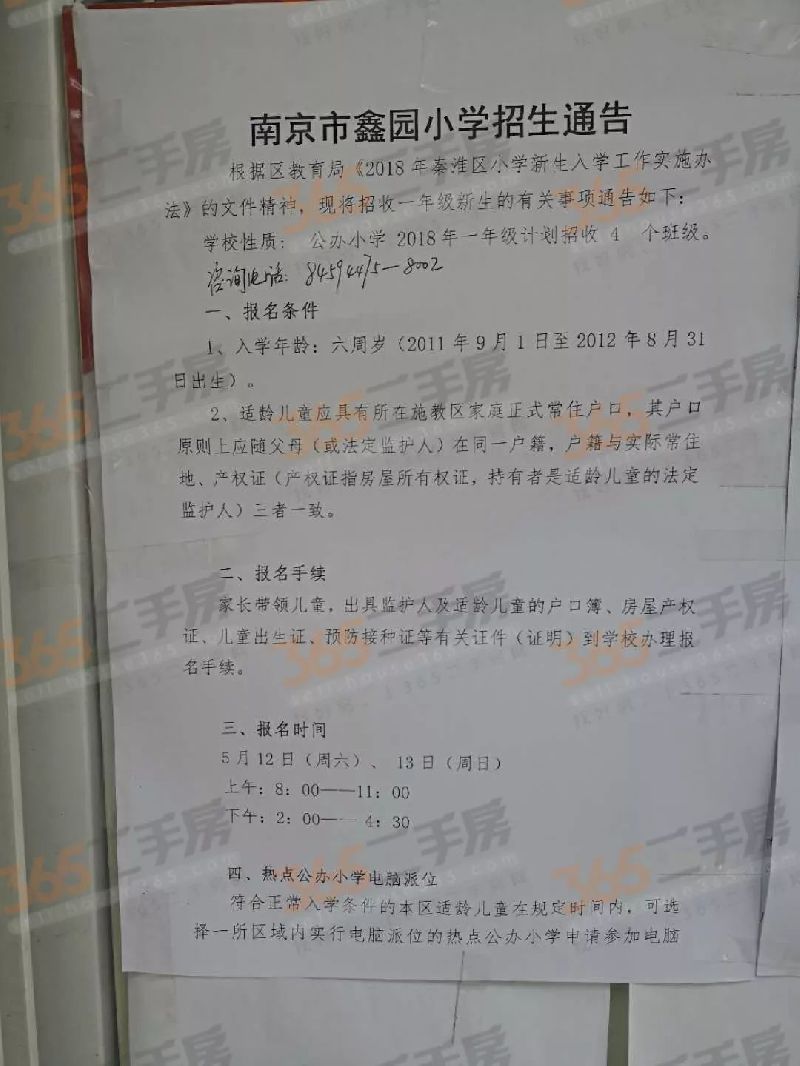 南京市鑫园小学招生通告
根据区教育局《2018年秦淮区小学新生入学工作实施办
法》的文件精神，现将招收一年级新生的有关事项通告如下：
学校性质： 公办小学 2018年一年级计划招收 4 个班级。
咨询电话：84594475—8002
一、报名条件
1、入学年龄：六周岁（2011年9月1日至2012年8月31
日出生）。
2、适龄儿童应具有所在施教区家庭正式常住户口，其户口
原则上应随父母（或法定监护人）在同一户籍，户籍与实际常住
地、产权证（产权证指房屋所有权证，持有者是适龄儿童的法定
监护人）三者一致。
二、报名手续
家长带领儿童，出具监护人及适龄儿童的户口簿、房屋产权
证、儿童出生证、预防接种证等有关证件（证明）到学校办理报
名手续。
三、报名时间
5月12日（周六）、 13日（周日）
上午：8：00——11：00
下午：2：00—— 4：30
四、热点公办小学电脑派位
符合正常入学条件的本区适龄儿童在规定时间内，可选
择一所区域内实行电脑派位的热点公办小学申请参加电脑
365二手房